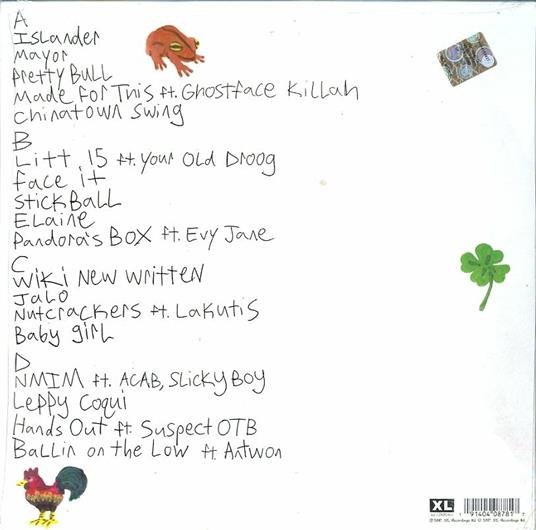 A
Islander
Mayor
Pretty Bull
Made for This ft. Ghostface Killah
Chinatown Swing
B
Litt 15 ft. Your Old Droog
Face it
Stickball
Elaine
Pandora's Box ft. Evy Jane
C
Wiki New Written
Jalo
Nutcrackers ft. Lakutis
Baby girl
D
NMIM ft. ACAB, Slicky Boy
Leppy Coqui
Hands Out ft. Suspect OTB
Ballin on the Low ft. Antwon
XL
1 91404 08781 7